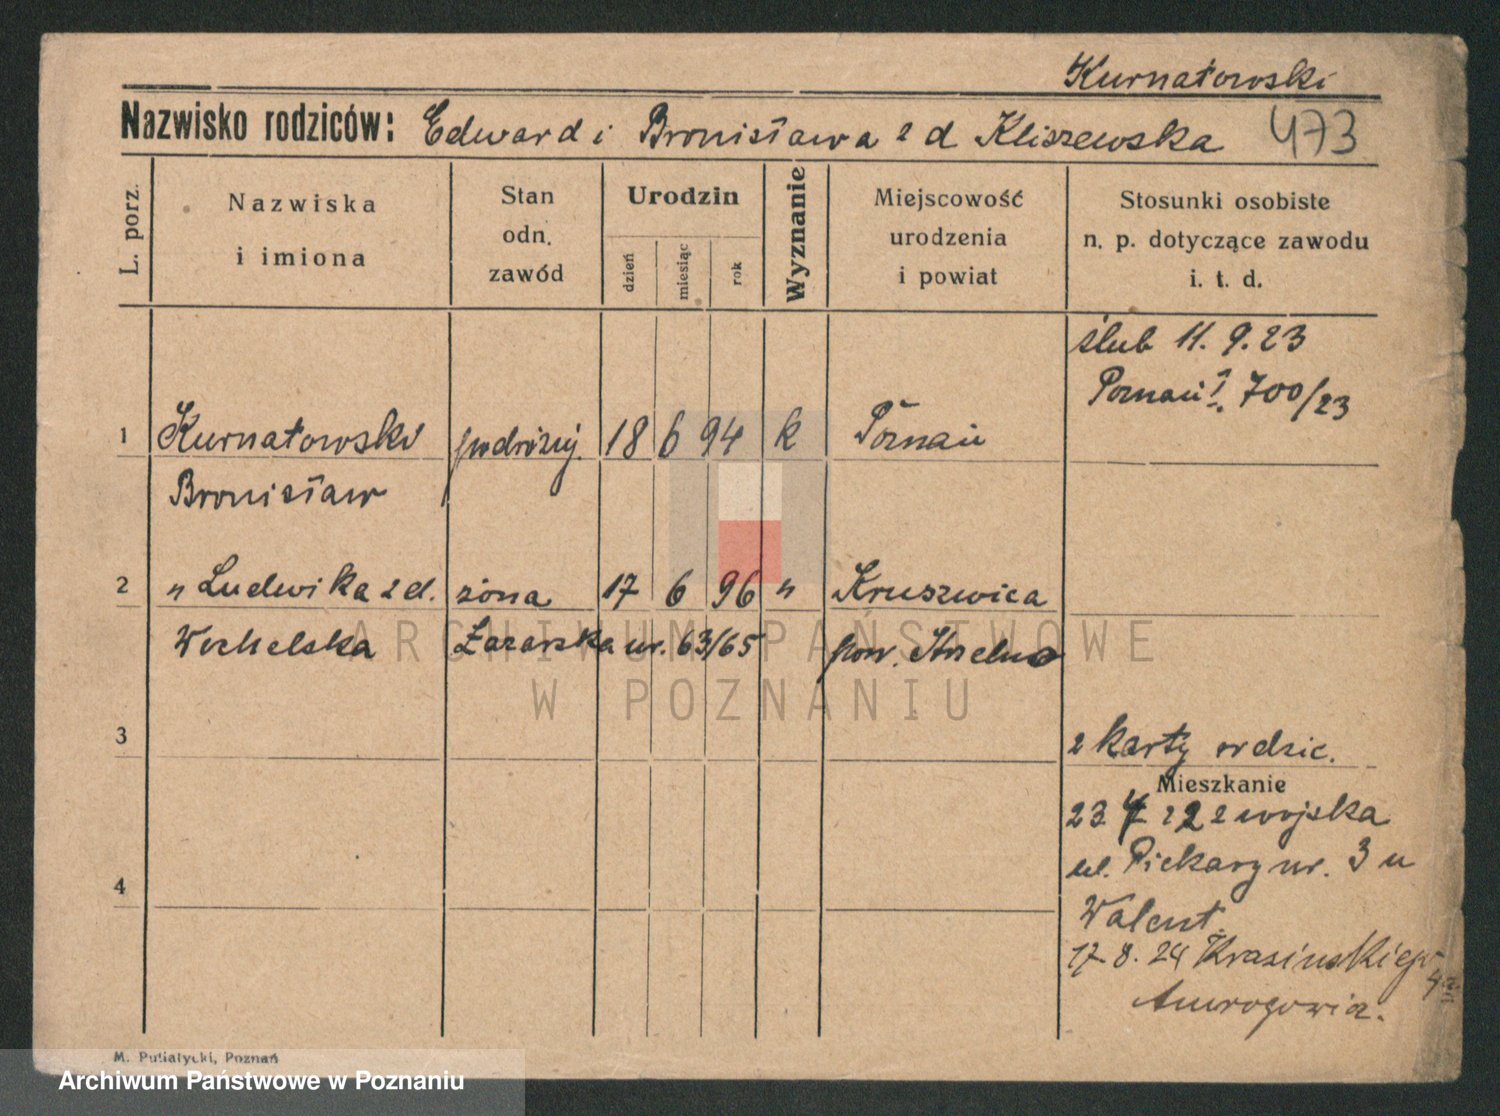 Kurnatowski
Nazwisko rodziców: Edward i Bronisława z d Kliszewska 473
L. porz.
Nazwiska
i imiona
Stan
odn.
zawód
Urodzin
dzień
miesiąc
rok
Wyznanie
Miejscowość
urodzenia
i powiat
Stosunki osobiste
n. p. dotyczące zawodu
i. t. d.
ślub 11. 9. 23
Poznań I. 700/23
1 Kurnatowski podróżuj. 18 6 94 k Poznań
Bronisław
2 " Ludwika z d. żona 17 6 96 " Kruszwica
Wochelska Łazarska nr. 63/65 pow. Strzelno
3
2 karty rodzic.
Mieszkanie
23 7 22 z wojska
ul. Piekary nr. 3 u
4
Walent.
17. 8. 24 Krasińskiego
4a
M. Putiatycki, Poznań
ARCHIWUM PAŃSTWOWE
W POZNANIU
Archiwum Państwowe w Poznaniu